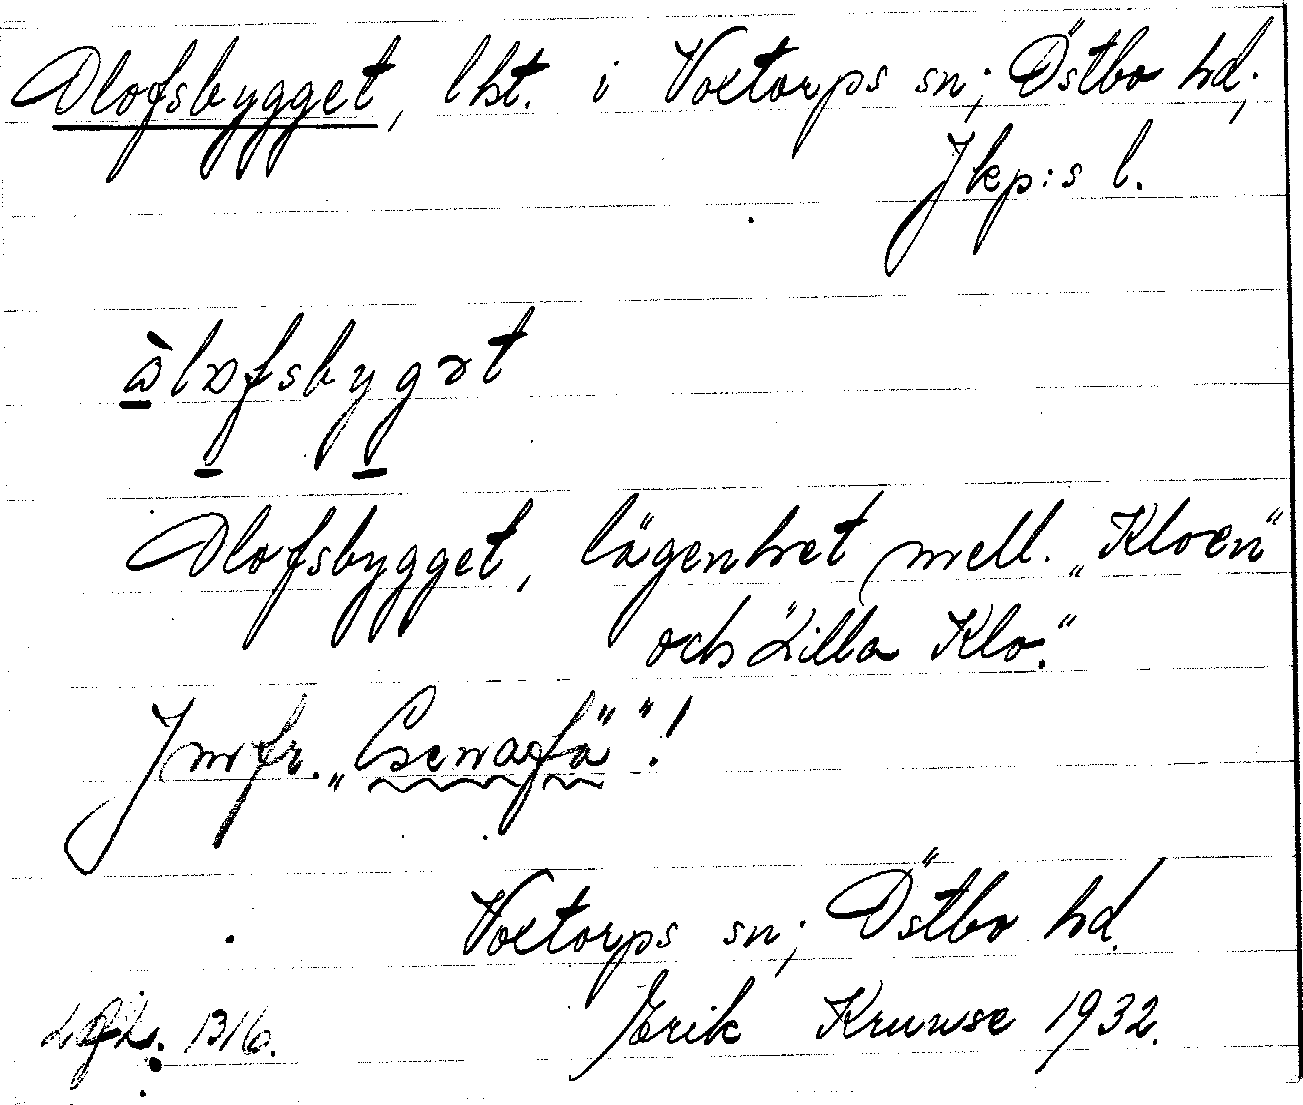 Olofsbygget, lht. i Voxtorps sn; Östbo hd;
Jkp:s l.
Olofsbygget, lägenhet mell. "Kloen"
och "Lilla Klo."
Jmfr.
Voxtorps sn; Östbo hd.
Erik Kruuse 1932.